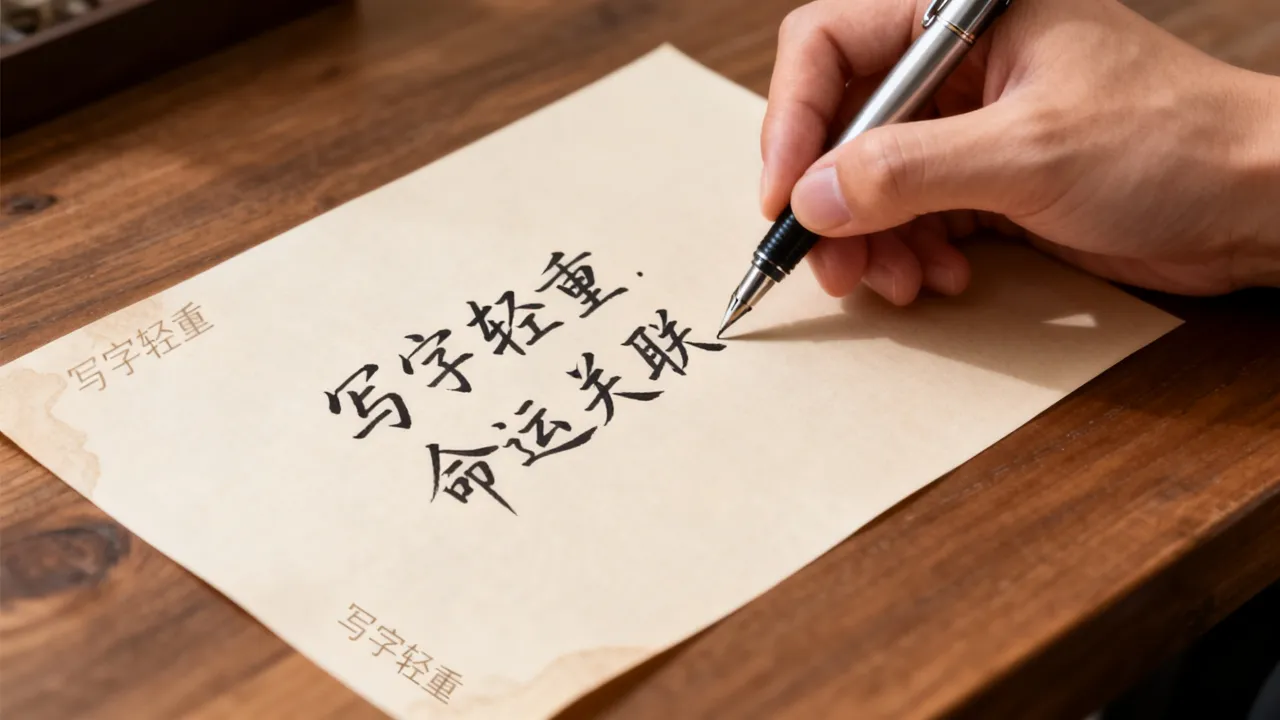 写字轻重
写字轻重.
命运关联
写字轻重